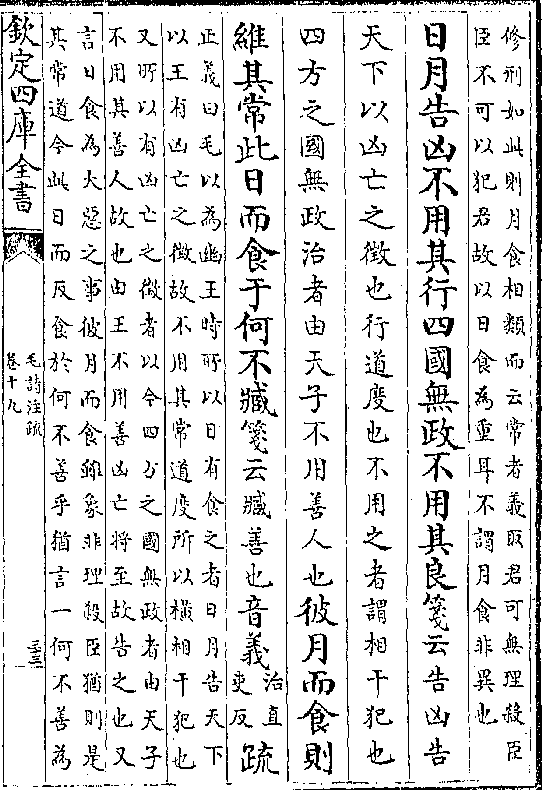 修刑如此則月食相類而云常者義取君可無理殺臣
臣不可以犯君故以日食為重耳不謂月食非異也
日月告凶不用其行四國無政不用其良箋云告凶告
天下以凶亡之徵也行道度也不用之者謂相干犯也
四方之國無政治者由天子不用善人也彼月而食則
維其常此日而食于何不臧箋云臧善也音義治直
吏反疏
正義曰毛以為幽王時所以日有食之者日月告天下
以王有凶亡之徵故不用其常道度所以橫相干犯也
又所以有凶亡之徵者以今四方之國無政者由天子
不用其善人故也由王不用善凶亡將至故告之也又
言日食為大惡之事彼月而食雖象非理殺臣猶則是
其常道今此日而反食於何不善乎猶言一何不善為
欽定四庫全書
毛詩注疏
卷十九
三三